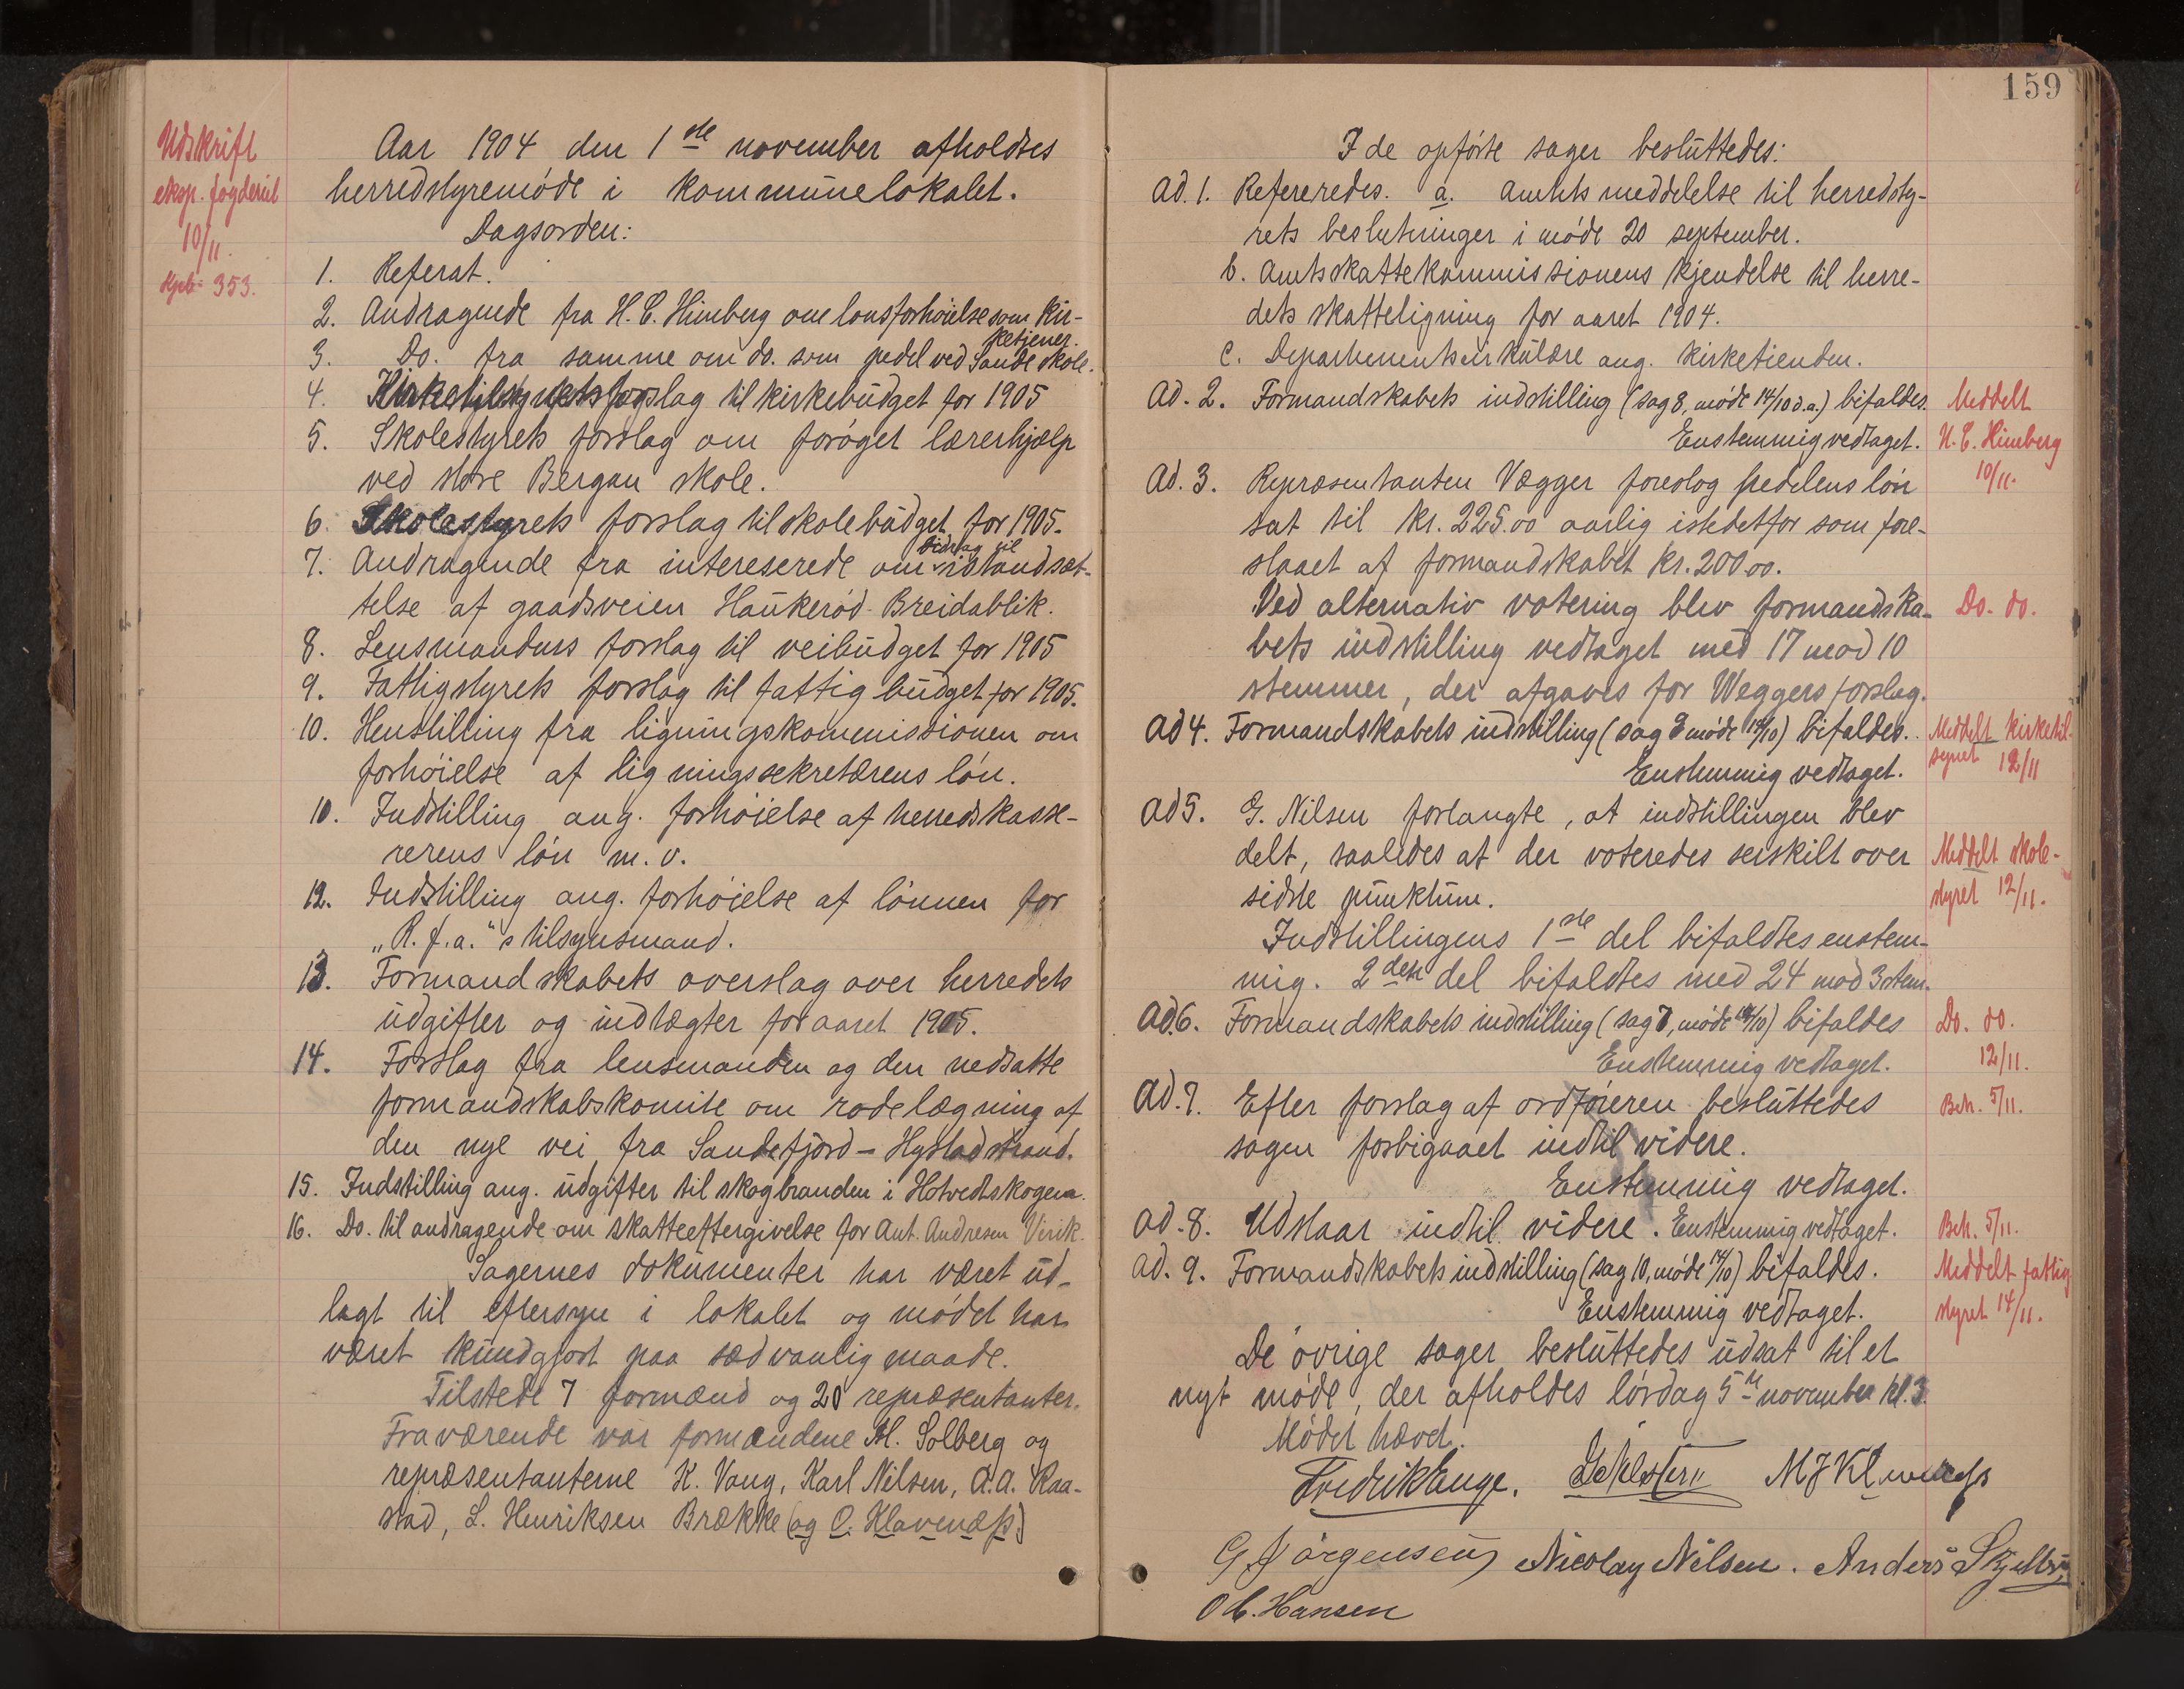 Udskrift
eksp. fogderiet
10/11.
Kpb. 353.
Aar 1904 den 1ste november afholdtes
herredstyremöde i kommunelokalet.
Dagsorden:
1. Referat.
2. Andragende fra H. C. Himberg om lönsforhöielse som kir-
ketjener.
3. Do. fra samme om do. som pedel ved Sande skole.
4. Kirketilsynets forslag til kirkebudget for 1905
5. Skolestyrets forslag om foröget lærerhjælp
ved store Bergan skole.
6. Skolestyrets forslag til skolebudget for 1905.
7. Andragende fra intereserede om bidrag til istandsæt-
telse af gaardsveien Haukeröd-Breidablik.
8. Lensmandens forslag til veibudget for 1905
9. Fattigstyrets forslag til fattigbudget for 1905.
10. Henstilling fra ligningskommissionen om
forhöielse af ligningssekretærens lön.
10. Indstilling ang. forhöielse af herredskasse-
rerens lön m. v.
12. Indstilling ang. forhöielse af lönnen for
„R. f. a."s tilsynsmand.
13. Formandskabets overslag over herredets
udgifter og indtægter for aaret 1905.
14. Forslag fra lensmanden og den nedsatte
formandskabskomite om rodelægning af
den nye vei fra Sandefjord - Hystadstrand.
15. Indstilling ang. udgifter til skogbranden i Hotvedtskogen.
16. Do. til andragende om skatteeftergivelse for Ant. Andresen Virik.
Sagernes dokumenter har været ud-
lagt til eftersyn i lokalet og mödet har
været kundgjort paa sædvanlig maade.
Tilstede 7 formænd og 20 repræsentanter.
Fraværende var formændene M. Solberg og
repræsentanterne K. Vang, Karl Nilsen, A. A. Raa-
stad, L. Henriksen Brække (og C. Klavenæss)
159
I de opförte sager besluttedes:
Ad. 1. Refereredes. a. Amtets meddelelse til herredsty-
rets beslutninger i möde 20 september.
b. Amtsskattekommissionens kjendelse til herre-
dets skatteligning for aaret 1904.
c. Departementscirkulære ang. kirketienden.
Ad. 2. Formandskabets indstilling (sag 8, möde 14/10 d.a.) bifaldes.
Enstemmig vedtaget.
Meddelt
H. C. Himberg
10/11.
Ad. 3. Repræsentanten Vægger foreslog pedelens lön
sat til kr. 225.00 aarlig istedetfor som fore-
slaaet af formandskabet kr. 200.00.
Ved alternativ votering blev formandska-
bets indstilling vedtaget med 17 mod 10
stemmer, der afgaves for Weggers forslag.
Do. do.
Ad 4. Formandskabets indstilling (sag 9 möde 14/10) bifaldes.
Enstemmig vedtaget.
Meddelt kirketil-
synet 12/11
Ad 5. G. Nilsen forlangte, at indstillingen blev
delt, saaledes at der voteredes serskilt over
sidste punktum.
Meddelt skole-
styret 12/11.
Indstillingens 1ste del bifaldtes enstem-
mig. 2den del bifaldtes med 24 mod 3 stem.
Ad. 6. Formandskabets indstilling (sag 7, möde 14/10) bifaldes
Enstemmig vedtaget.
Do. do.
12/11.
Ad. 7. Efter forslag af ordföreren besluttedes
sagen forbigaaet indtil videre.
Enstemmig vedtaget.
Beh. 5/11.
Ad. 8. Udstaar indtil videre. Enstemmig vedtaget.
Beh. 5/11.
Ad. 9. Formandskabets indstilling (sag 10, möde 14/10) bifaldes.
Enstemmig vedtaget.
Meddelt fattig
styret 14/11.
De övrige sager besluttedes udsat til et
nyt möde, der afholdes lördag 5te november kl. 3.
Mödet hævet.
Fredrik Lange. M J Klavenæss
G Jörgensen Nicolay Nilsen. Anders Skjelbr
O C. Hansen